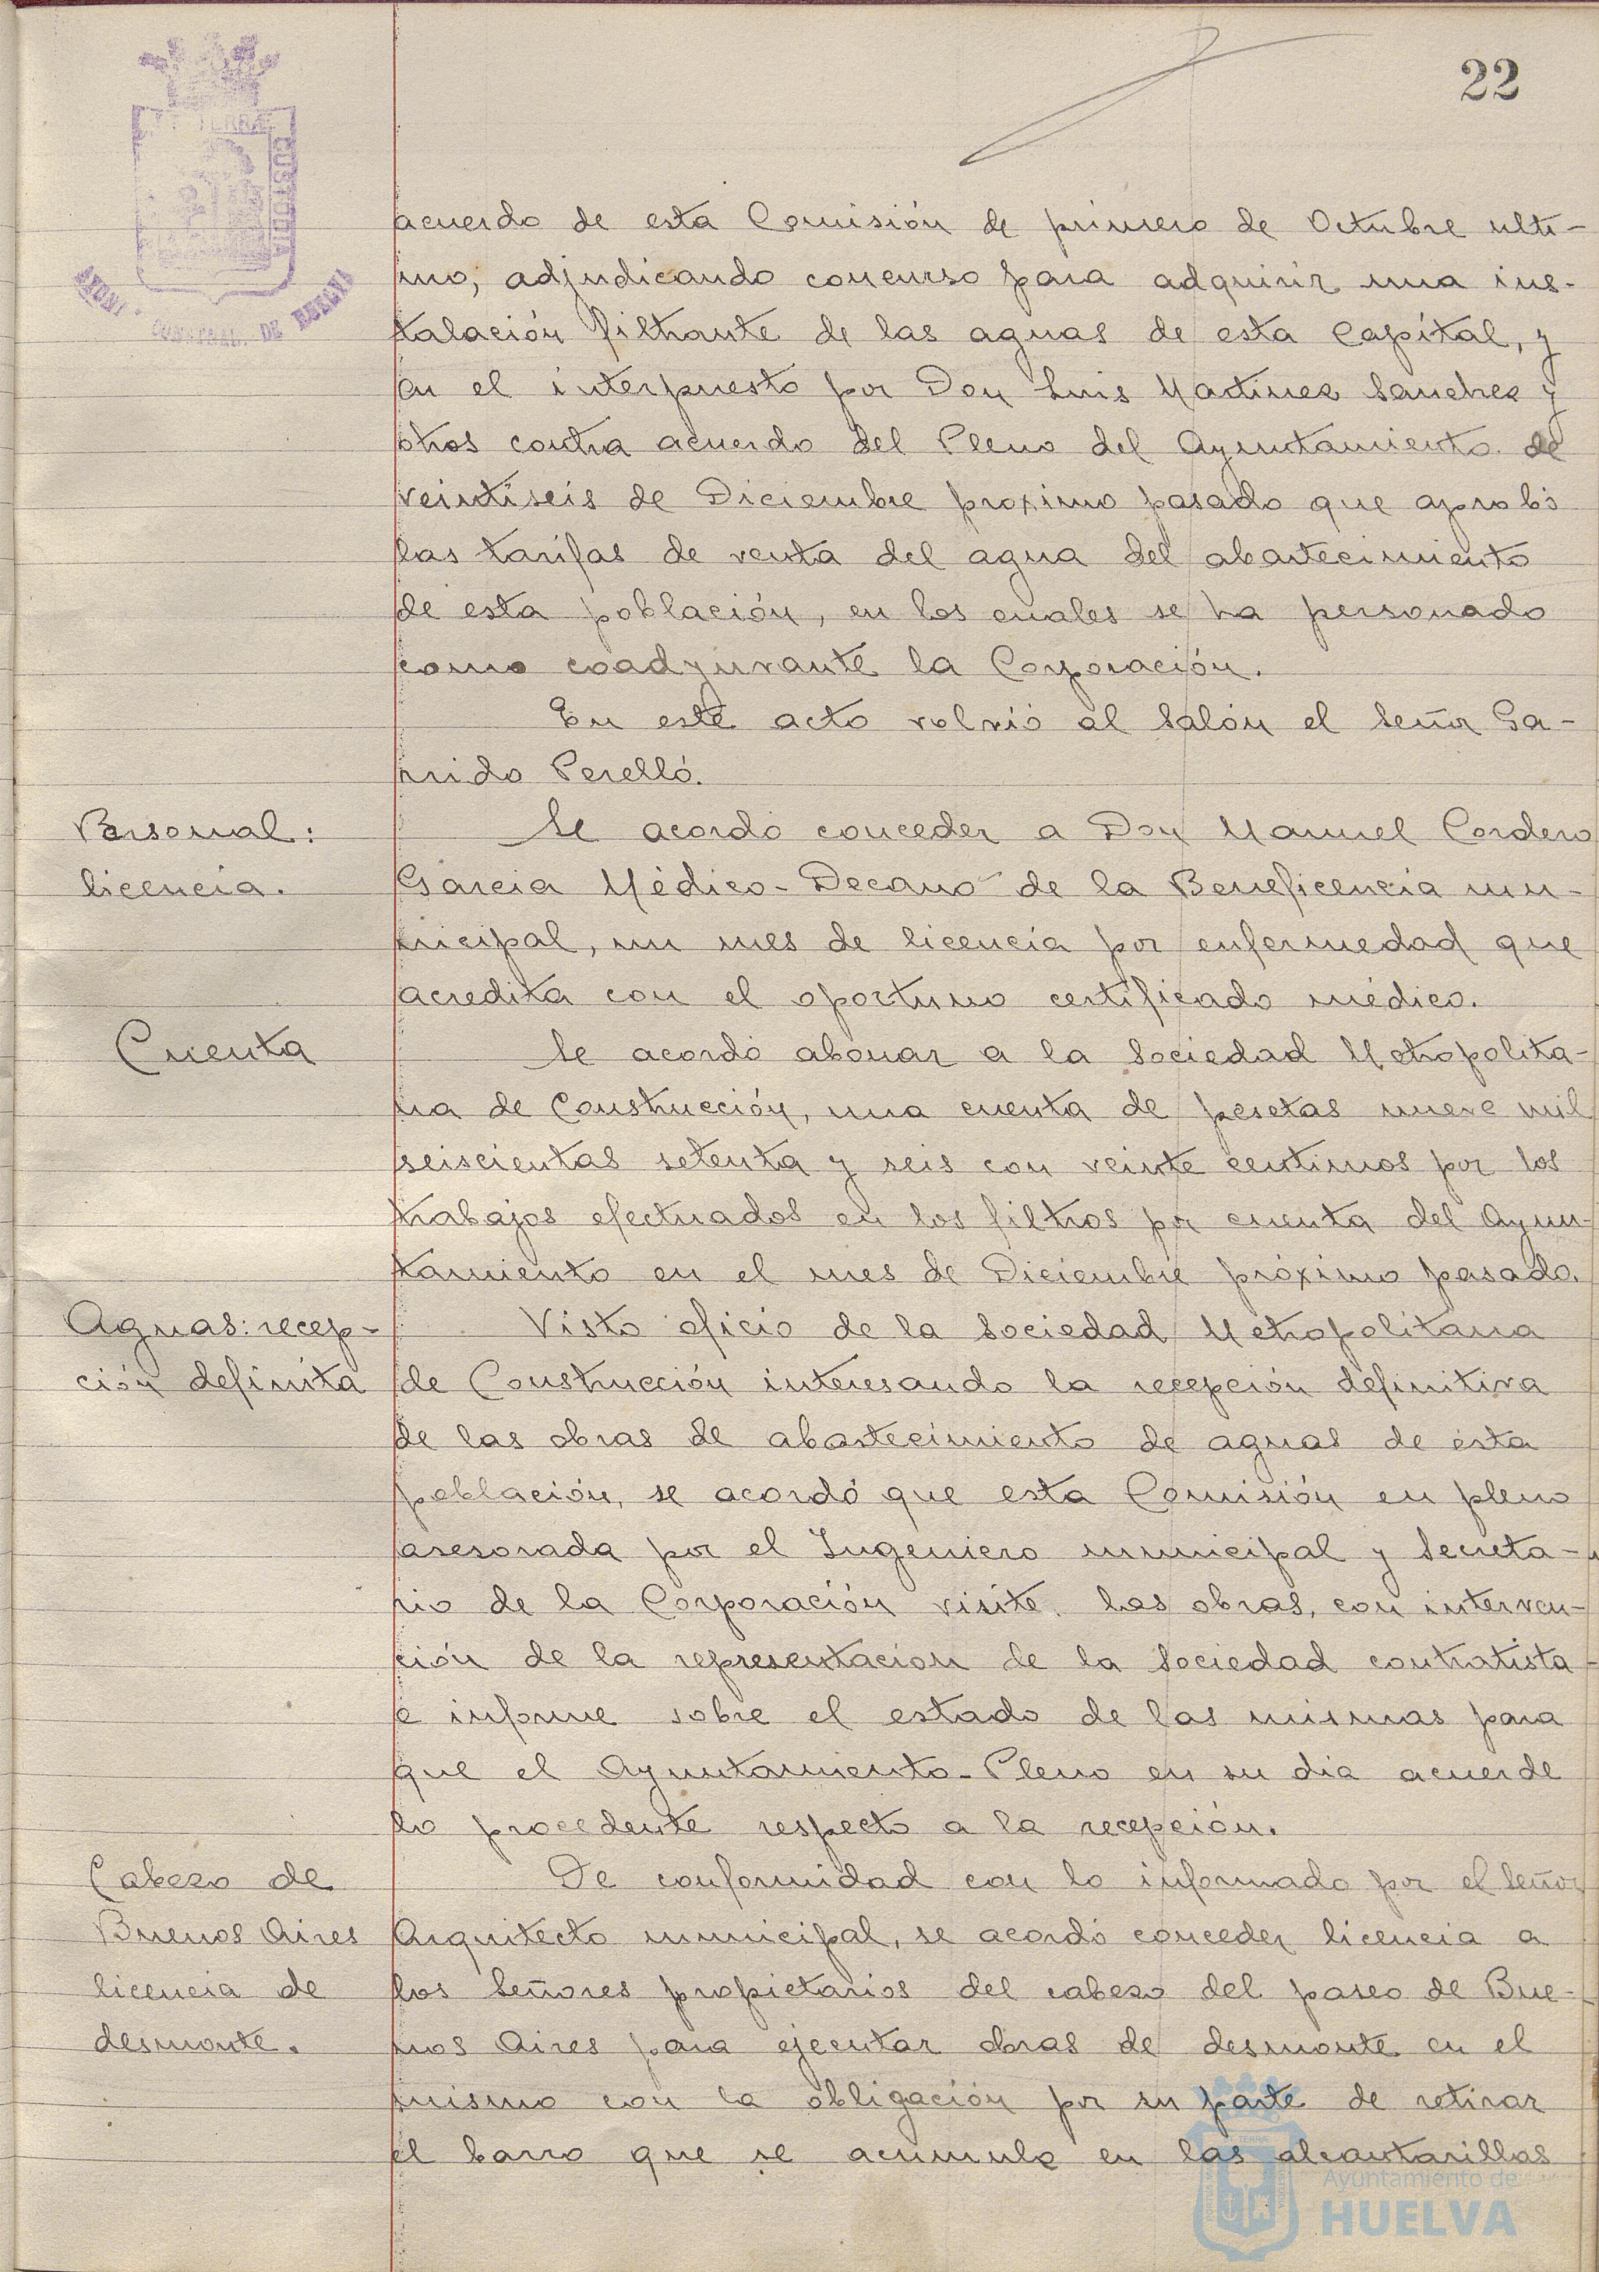 22
acuerdo de esta Comisión de primero de Octubre ulti-
mo, adjudicando concurso para adquirir una ins-
talación filtrante de las aguas de esta Capital, y
en el interpuesto por Don Luis Martinez Sanchez y
otros contra acuerdo del Pleno del Ayuntamiento de
veintiseis de Diciembre proximo pasado que aprobó
las tarifas de venta del agua del abastecimiento
de esta población, en los cuales se ha personado
como coadyuvante la Corporación.
En este acto volvió al Salón el Señor Ga-
rrido Perelló.
Personal:
licencia.
Se acordó conceder a Don Manuel Cordero
Garcia Médico-Decano de la Beneficencia mu-
nicipal, un mes de licencia por enfermedad que
acredita con el oportuno certificado médico.
Cuenta
Se acordó abonar a la Sociedad Metropolita-
na de Construcción, una cuenta de pesetas nueve mil
seiscientas setenta y seis con veinte centimos por los
trabajos efectuados en los filtros por cuenta del Ayun-
tamiento en el mes de Diciembre próximo pasado.
Aguas: recep-
ción definita
Visto oficio de la Sociedad Metropolitana
de Construcción interesando la recepción definitiva
de las obras de abastecimiento de aguas de esta
población, se acordó que esta Comisión en pleno
asesorada por el Ingeniero municipal y Secreta-
rio de la Corporación visite las obras, con interven-
ción de la representacion de la Sociedad contratista
e informe sobre el estado de las mismas para
que el Ayuntamiento-Pleno en su dia acuerde
lo procedente respecto a la recepción.
Cabezo de
Buenos Aires
licencia de
desmonte.
De conformidad con lo informado por el Señor
Arquitecto municipal, se acordó conceder licencia a
los Señores propietarios del cabezo del paseo de Bue-
nos Aires para ejecutar obras de desmonte en el
mismo con la obligación por su parte de retirar
el barro que se acumule en las alcantarillas
Ayuntamiento de
HUELVA